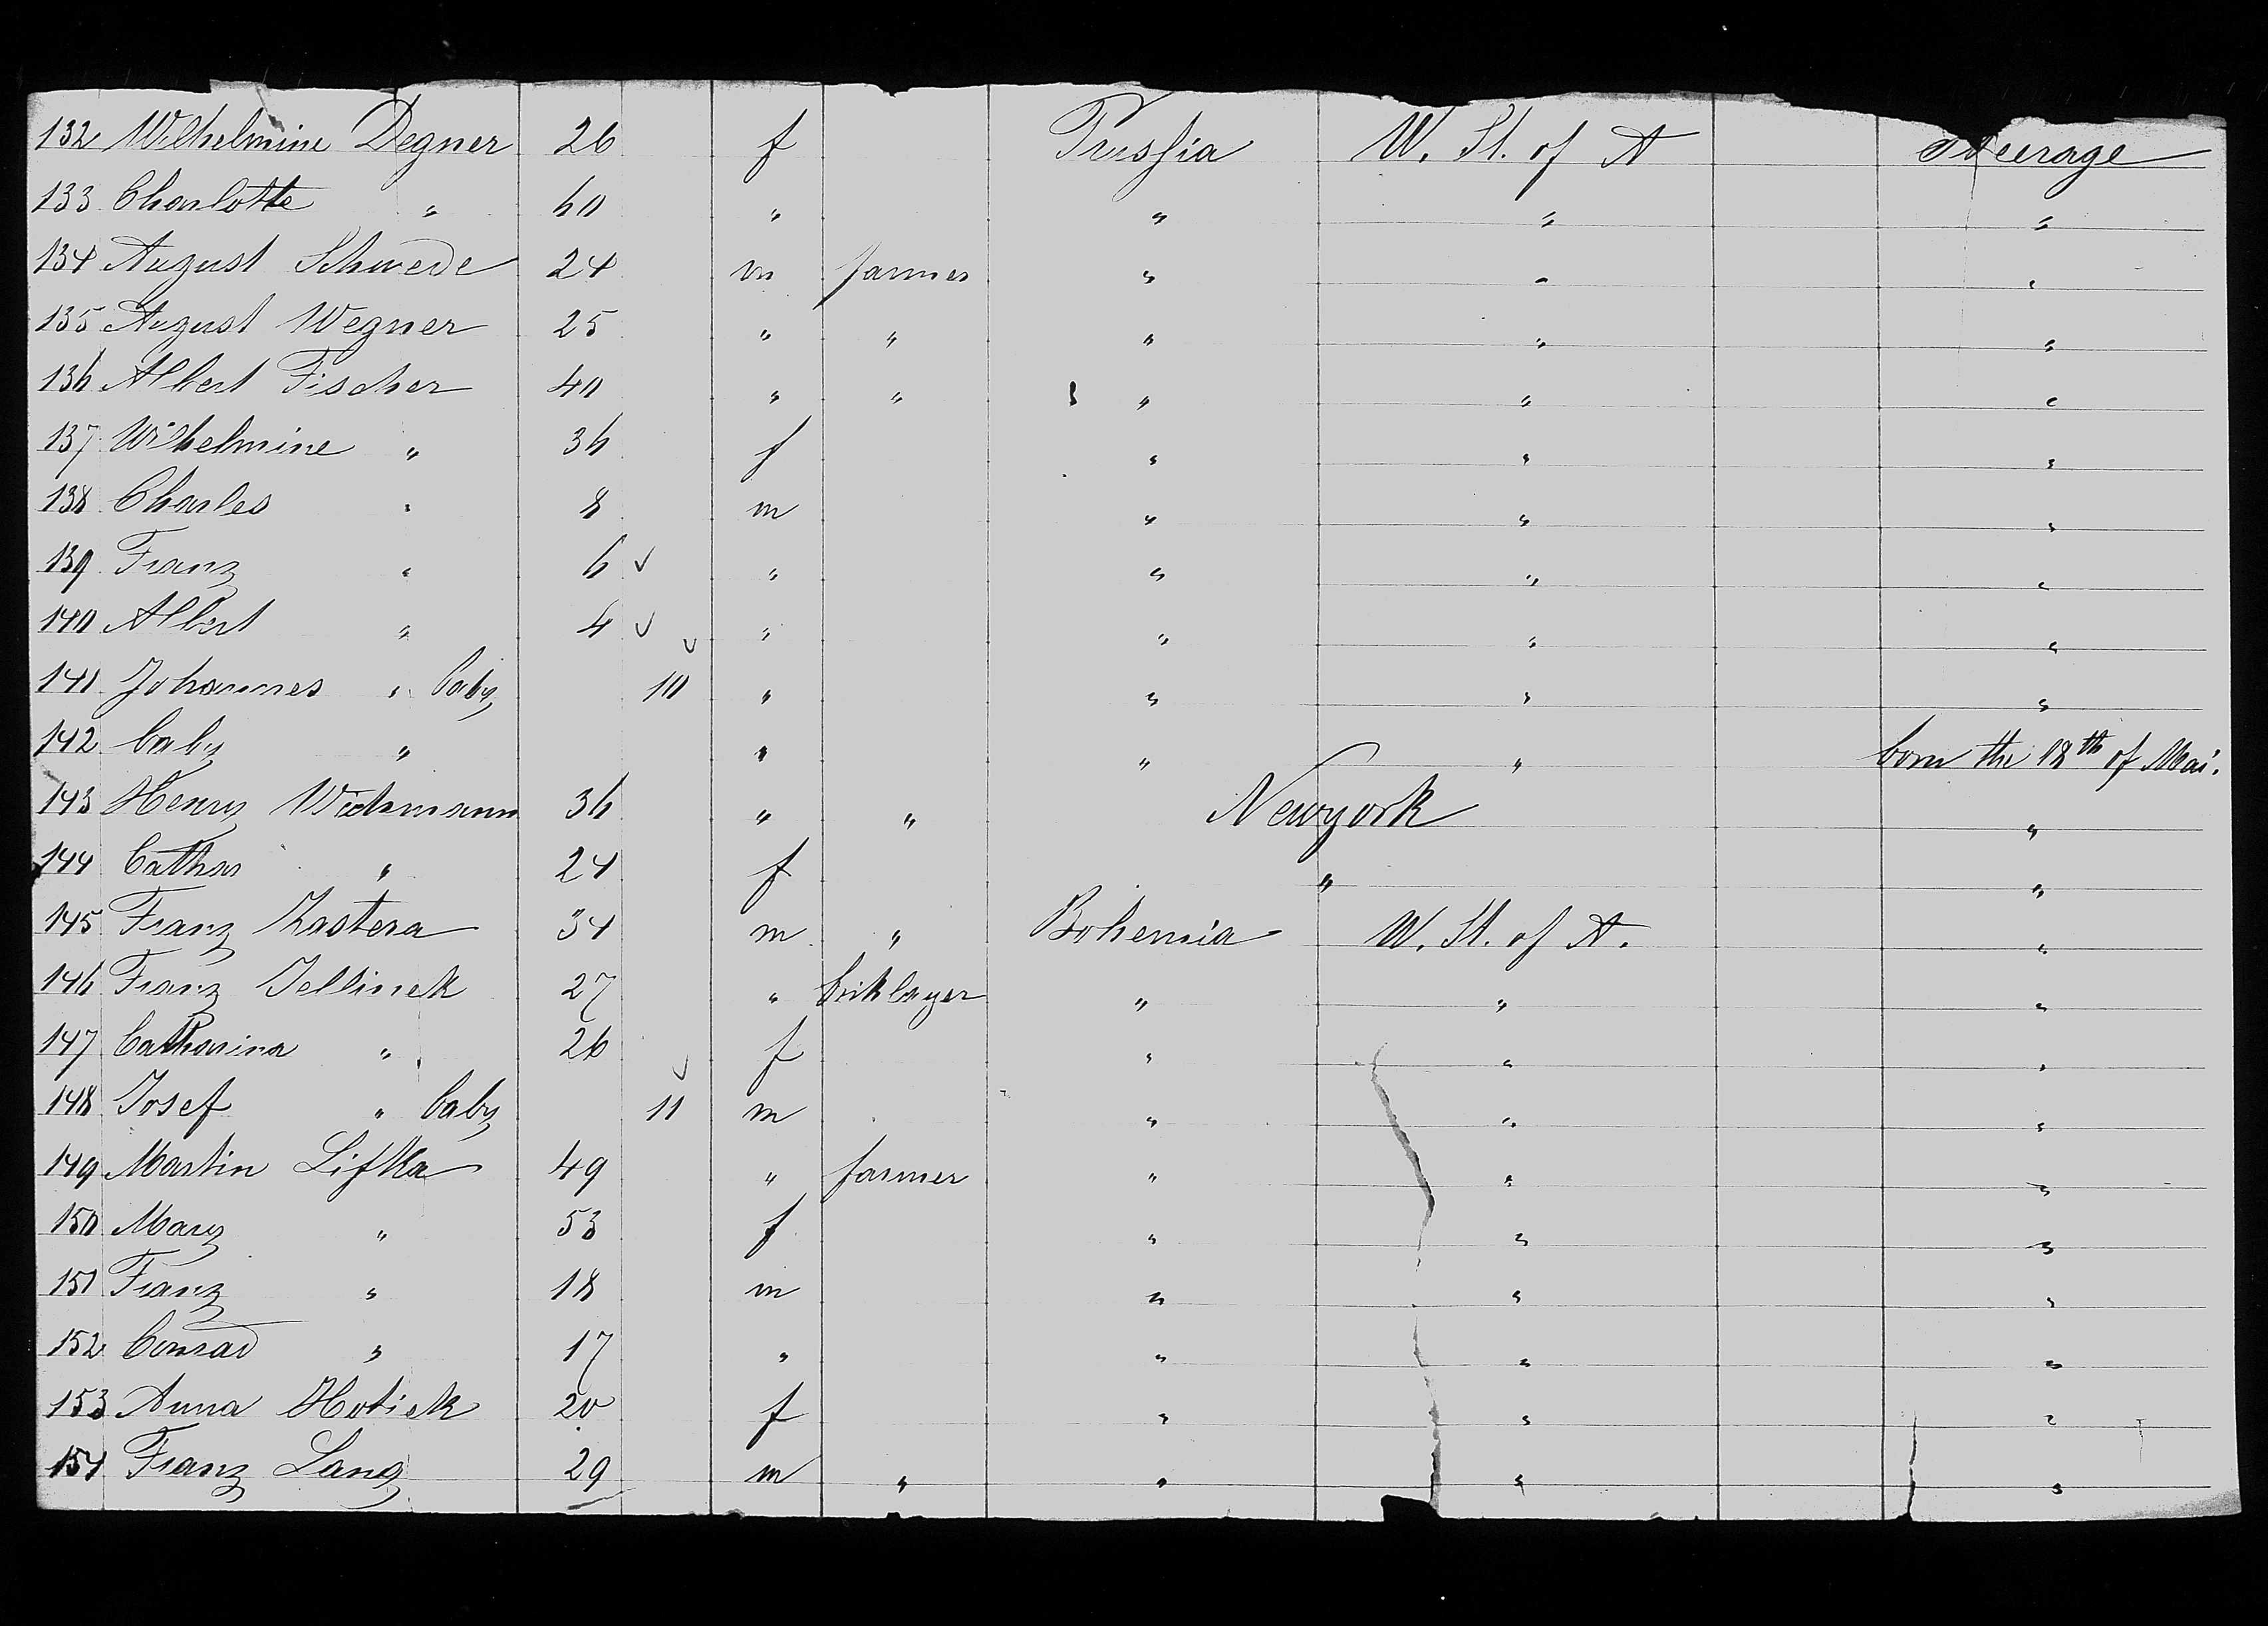 132 Wilhelmine Degner 26 f Prussia U. St. of A Steerage
133 Charlotte " 60 " " " "
134 August Schwede 24 m farmer " " "
135 August Wegner 25 " " " " "
136 Albert Fischer 40 " " " " "
137 Wilhelmine " 36 f " " "
138 Charles " 8 m " " "
139 Franz " 6 ✓ " " " "
140 Albert " 4 ✓ " " " "
141 Johannes " baby ✓ 10 " " " "
142 baby " " " " born the 18th of Mai.
143 Henry 36 " " Newyork "
144 Cathar " 24 f " "
145 Franz Kastera 34 m " Bohemia U. St. of A. "
146 Franz Jellinek 27 " briklayer " " "
147 Catharina " 26 f " " "
148 Josef " baby ✓ 11 m " " "
149 Martin Lifka 49 " farmer " " "
150 Mary " 53 f " " "
151 Franz " 18 m " " "
152 Conrad " 17 " " " "
153 Anna Hotiek 20 f " " "
154 Franz Lang 29 m " " " "